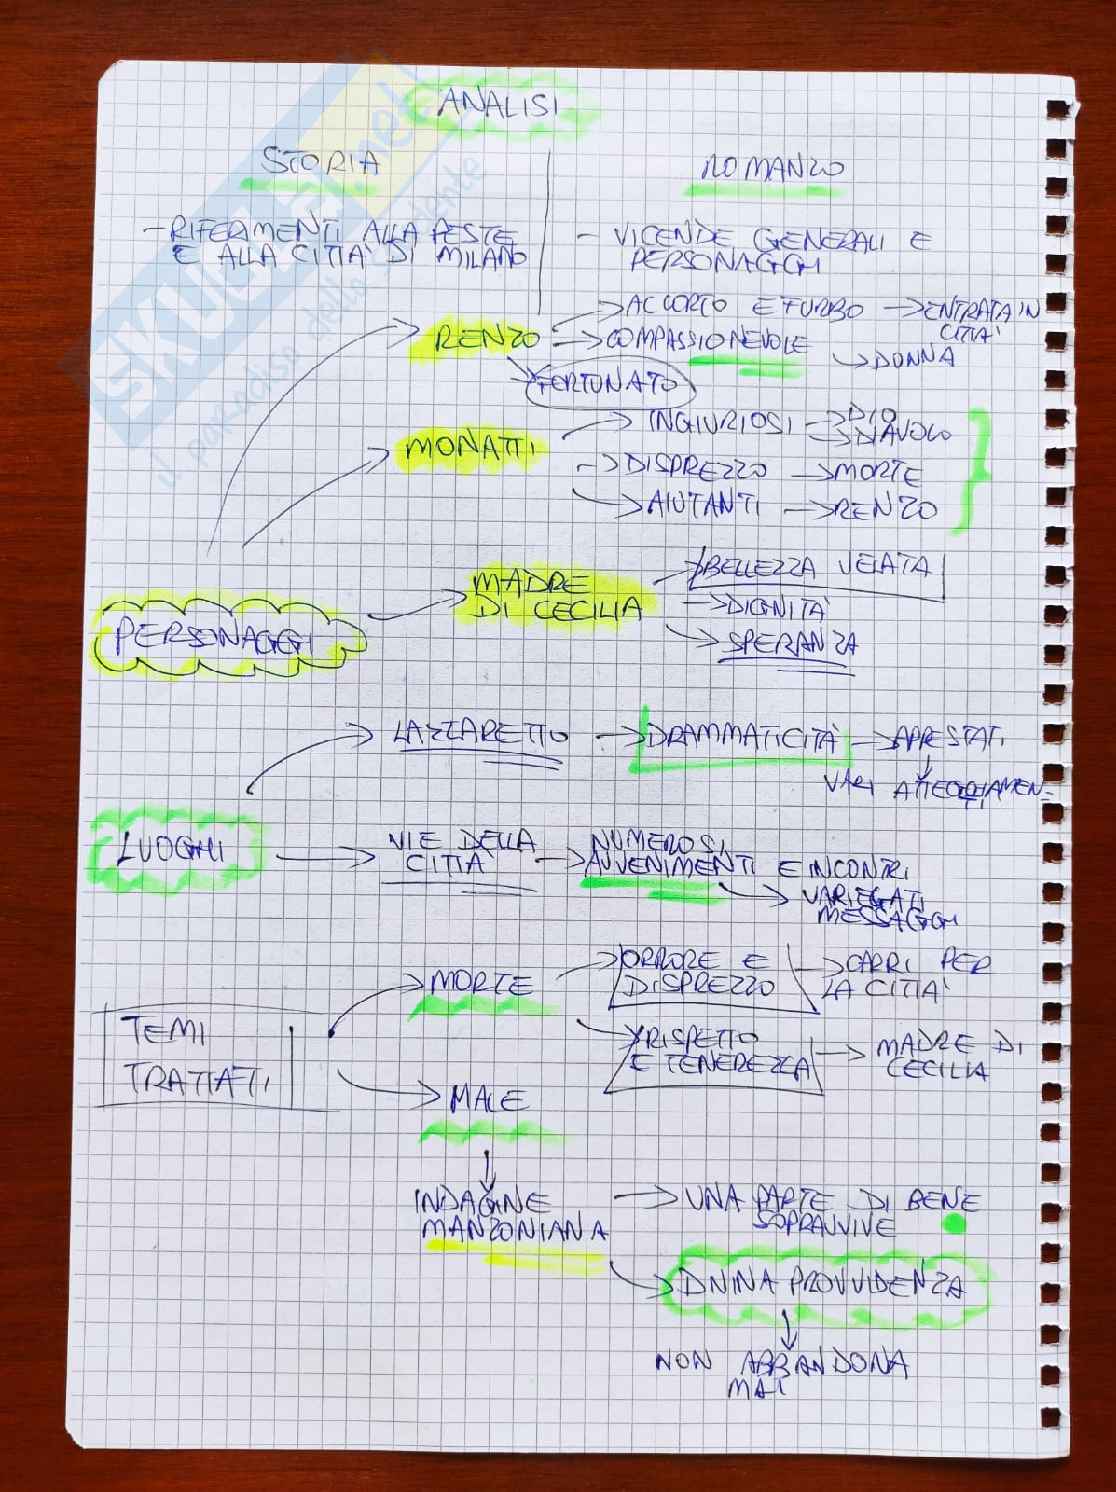 ANALISI
STORIA
ROMANZO
- RIFERIMENTI ALLA PESTE
E ALLA CITTA' DI MILANO
- VICENDE GENERALI E
PERSONAGGI
RENZO
→ ACCORTO E FURBO → ENTRATA IN
CITTA'
→ COMPASSIONEVOLE → DONNA
→ FORTUNATO
MONATTI
→ INGIURIOSI → DIO
→ DIAVOLO
→ DISPREZZO → MORTE
→ AIUTANTI → RENZO
MADRE
DI CECILIA
→ BELLEZZA VELATA
→ DIGNITA'
→ SPERANZA
PERSONAGGI
LAZZARETTO → DRAMMATICITA' → APPESTATI
VARI ATTEGGIAMEN-
TI
LUOGHI
VIE DELLA
CITTA'
→ NUMEROSI
AVVENIMENTI E INCONTRI
→ VARIEGATI
MESSAGGI
TEMI
TRATTATI
MORTE
→ ORRORE E
DISPREZZO
→ CARRI PER
LA CITTA'
→ RISPETTO
E TENEREZZA
→ MADRE DI
CECILIA
MALE
INDAGINE
MANZONIANA
→ UNA PARTE DI BENE
SOPRAVVIVE
→ DIVINA PROVVIDENZA
NON ABBANDONA
MAI
SKUOLA.net
il paradiso dello studente